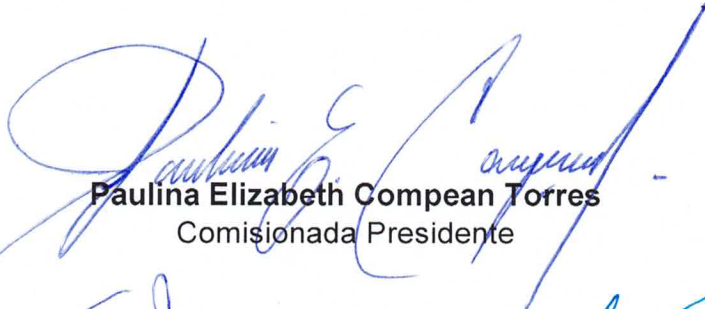 Paulina E. Compean
Paulina Elizabeth Compean Torres
Comisionada Presidente